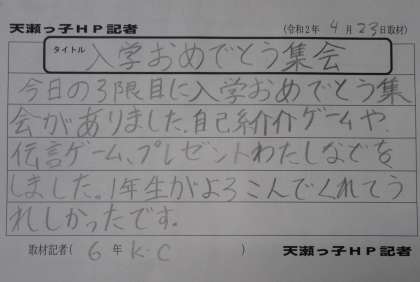 天瀬っ子HP記者 (令和2年 4月23日取材)
タイトル 入学おめでとう集会
今日の3限目に入学おめでとう集
会がありました。自己紹介介ゲームや、
伝言ゲーム、プレゼントわたしなどを
しました。1年生がよろこんでくれてう
れしかったです。
取材記者( 6年 K・C ) 天瀬っ子HP記者